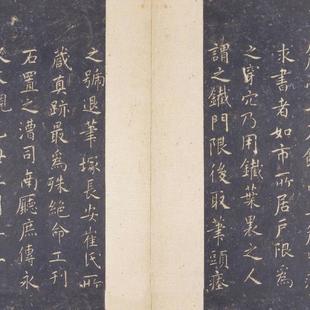 求書者如市所居戶限為
之穿穴乃用鐵葉裹之人
謂之鐵門限後取筆頭瘞
之號退筆塚長安崔氏所
藏真跡最為殊絕命工刊
石置之漕司南廳庶傳永
久大觀己丑二月十一